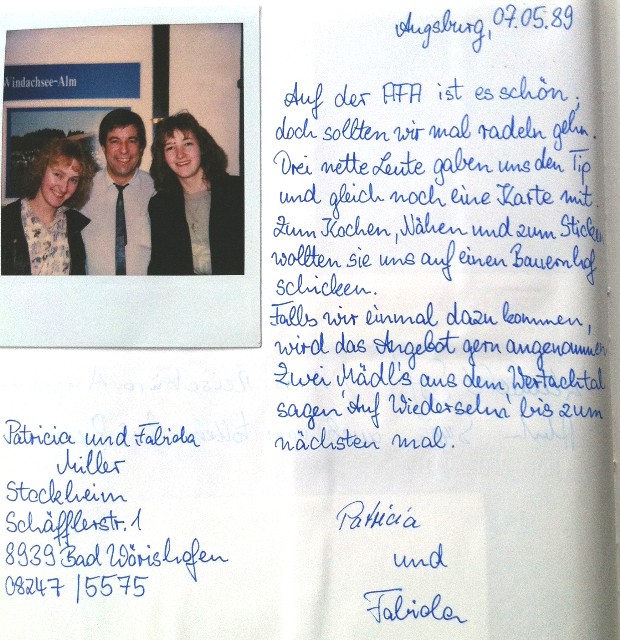 Windachsee-Alm
Augsburg, 07.05.89
Auf der AFA ist es schön,
doch sollten wir mal radeln gehn.
Drei nette Leute gaben uns den Tip
und gleich noch eine Karte mit.
Zum Kochen, Nähen und zum Sticken
wollten sie uns auf einen Bauernhof
schicken.
Falls wir einmal dazu kommen,
wird das Angebot gern angenommen
Zwei Mädl's aus dem Wertachtal
sagen 'Auf Wiedersehn' bis zum
nächsten mal.
Patricia
und
Fabiola
Patricia und Fabiola
Miller
Stockheim
Schäfflerstr. 1
8939 Bad Wörishofen
08247 / 5575